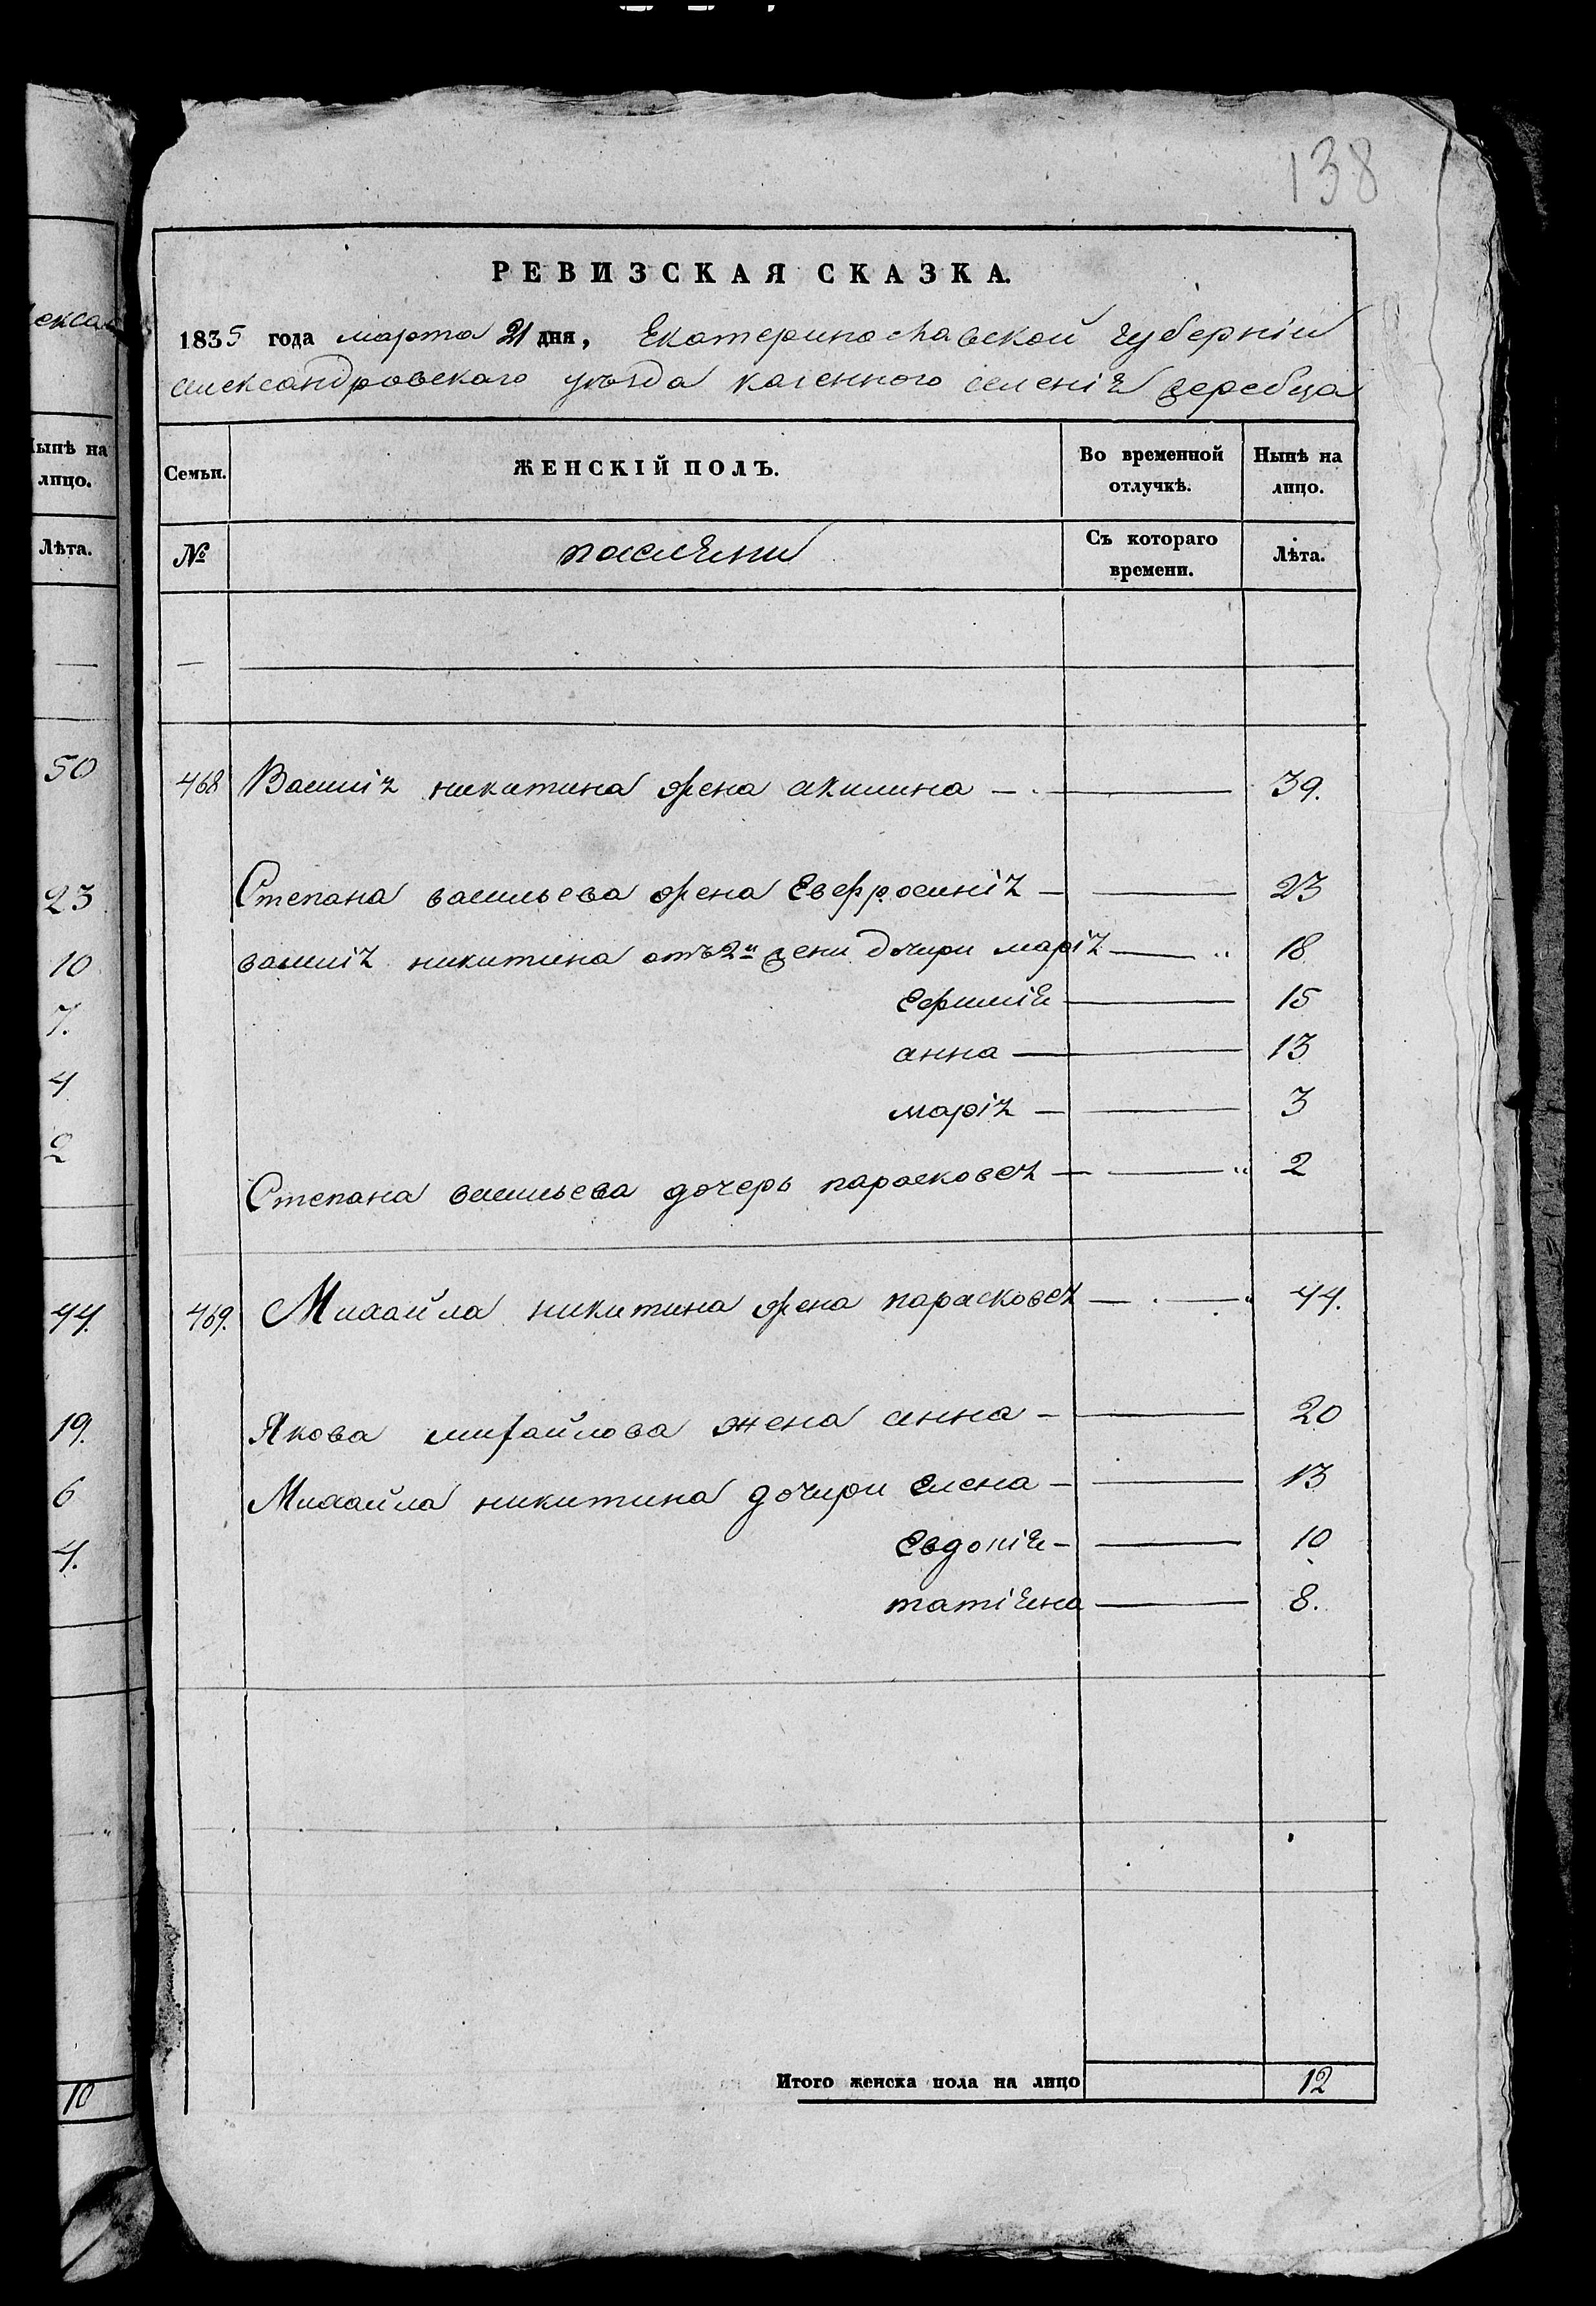 138
РЕВИЗСКАЯ СКАЗКА.
1835 года марта 21 дня, Екатеринославской губерніи
александровского уѣзда казенного селенія жеребца
Семьи. ЖЕНСКІЙ ПОЛЪ. Во временной отлучкѣ. Нынѣ на лицо.
№ поселяни Съ котораго времени. Лѣта.
468 Василія никитина жена акилина — 39.
Степана васильева жена Евфросинія — 23
василія никитина отъ 2й жени дочири марія — 18
Ефимія — 15
анна — 13
марія — 3
Степана васильева дочерь парасковея — 2
469. Михайла никитина жена парасковея — 44.
Якова михайлова жена анна — 20
Михайла никитина дочири елена — 13
Евдокія — 10
татіяна — 8.
Итого женска пола на лицо 12
екса
Нынѣ на
лицо.
Лѣта.
50
23
10
7.
4
2
44.
19.
6
4.
10